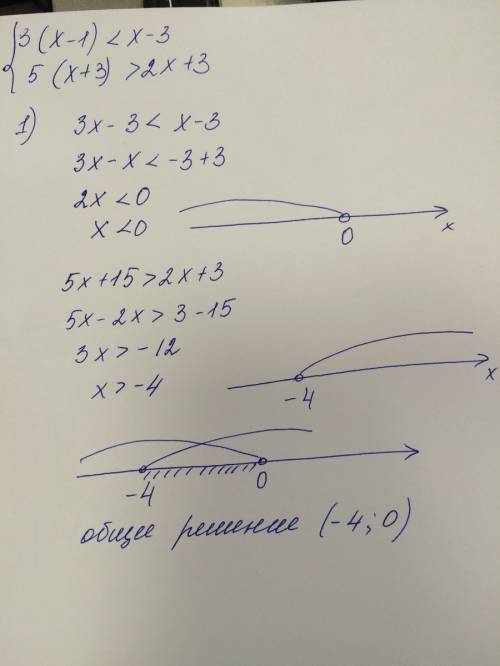 { 3(x-1) < x-3
5(x+3) > 2x+3
1) 3x-3 < x-3
3x-x < -3+3
2x < 0
x < 0
0 x
5x+15 > 2x+3
5x-2x > 3-15
3x > -12
x > -4
-4 x
-4 0
общее решение (-4; 0)